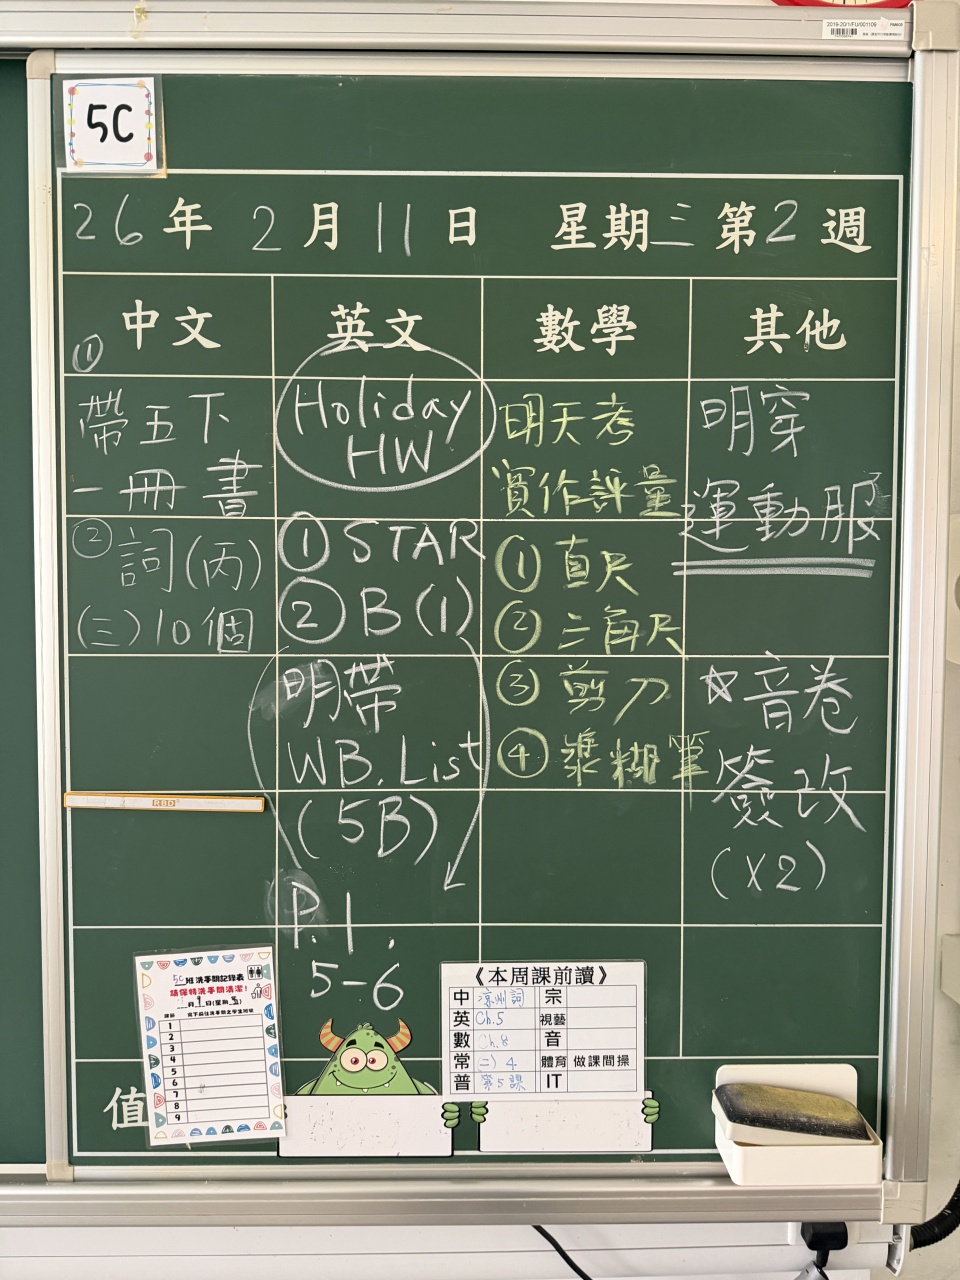 2019-20/1/FU/001109
5C
26年 2月11日 星期三 第2週
中文 英文 數學 其他
①
帶五下
一冊書
② 詞(丙)
(三)10個
Holiday
HW
① STAR
② B (1)
明帶
WB, List
(5B)
P.1.
5-6
明天考
實作評量
① 直尺
② 三角尺
③ 剪刀
④ 漿糊筆
明穿
運動服
☆音卷
簽改
(x2)
RBD
5C班洗手間記錄表
請保持洗手間清潔!
月9日(星期五)
1
2
3
4
5
6
7
8
9
值
《本周課前讀》
中 涼州詞 宗
英 Ch.5 視藝
數 Ch.8 音
常 二)4 體育 做課間操
普 第5課 IT